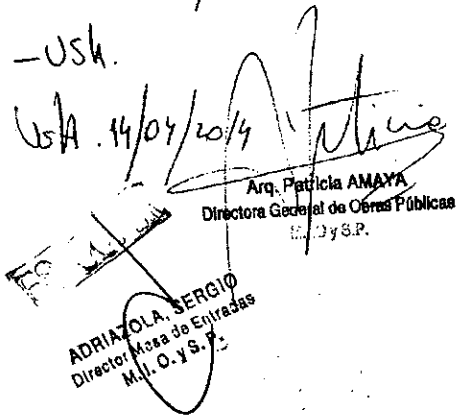 -USh.
Ush. 14/04/2014
Arq. Patricia AMAYA
Directora General de Obras Públicas
M.I.O y S.P.
ADRIAZOLA, SERGIO
Director Mesa de Entradas
M.I.O. y S.P.